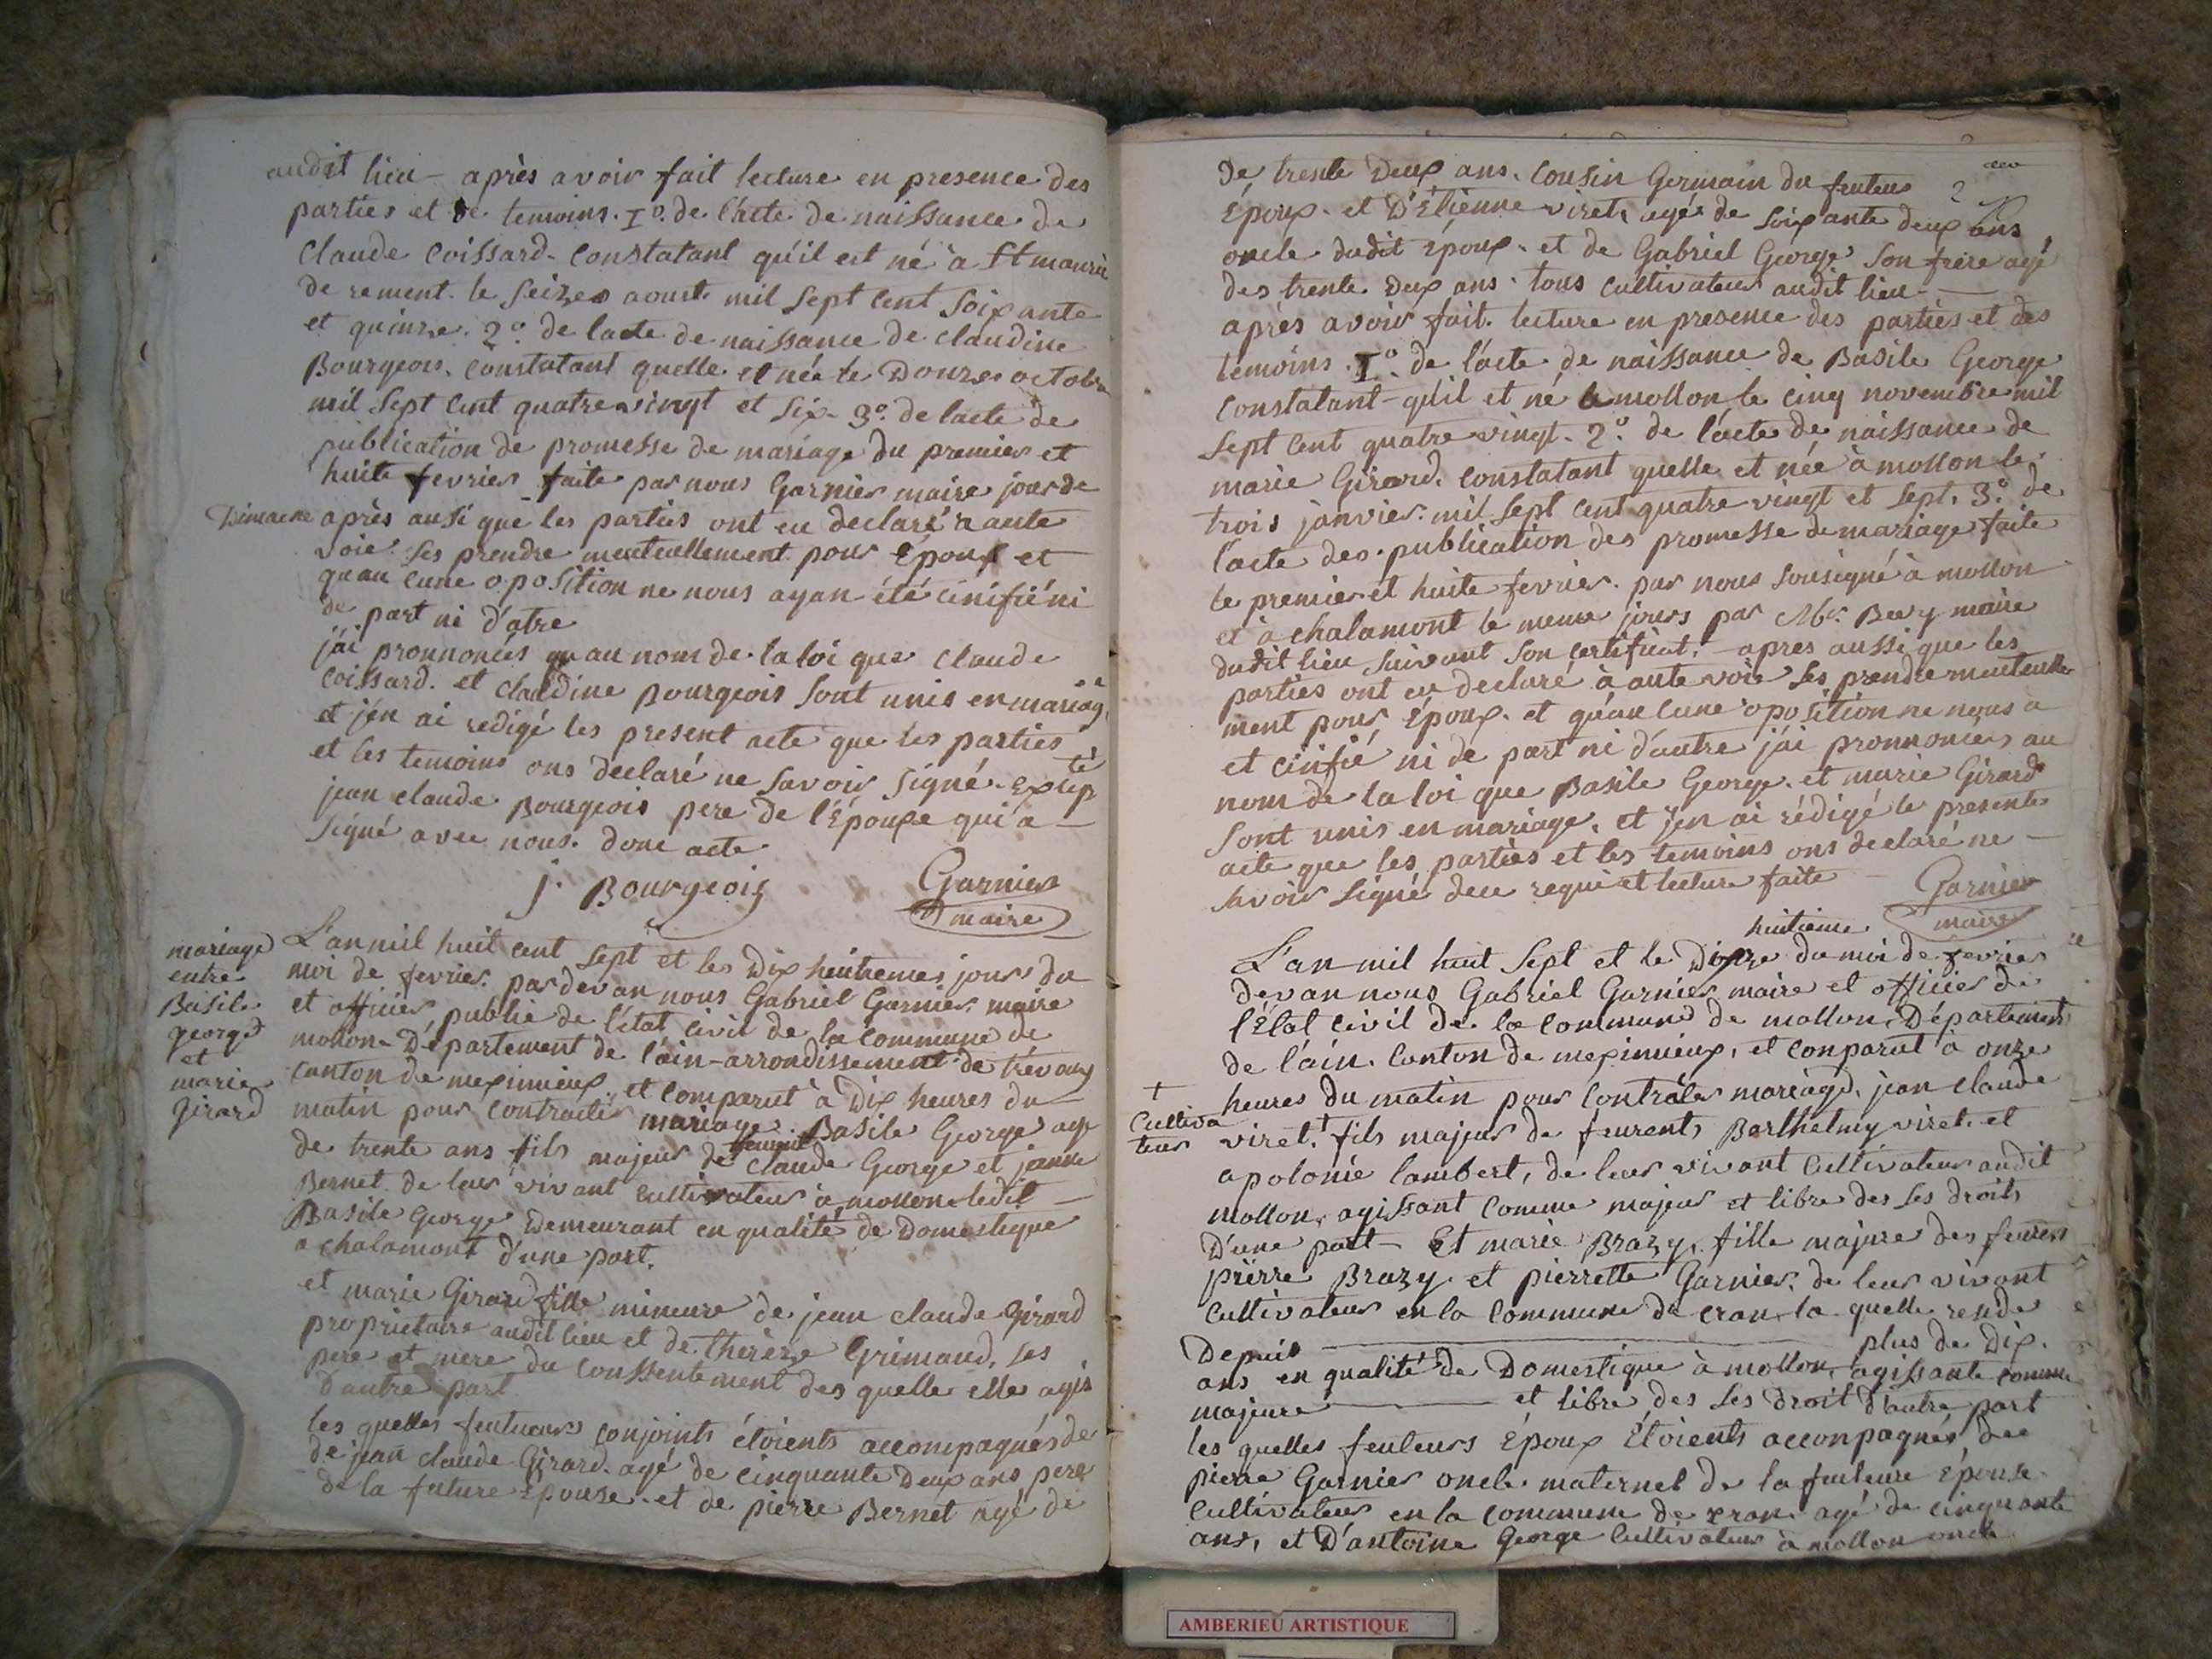 audit lieu - après avoir fait lecture en presence des
parties et de temoins. 1º. de l'acte de naissance de
Claude Coissard. Constatant qu'il est né à St maurice
de rement. le seizes aoust mil sept cent soixante
et quinze. 2º. de lacte de naissance de claudine
Bourgeois. constatant quelle et née le Douzes octobre
mil sept cent quatre vingt et six. 3º. de lacte de
publication de promesse de mariage du premier et
huite fevrier faite par nous Garnier maire jour de
Dimache après ausi que les parties ont eu declaré a aute
voie. ses prendre meutuellement pour Epoux et
quau cune oposition ne nous ayan été cinifié ni
de part ni d'atre
j'ai pronnoncés qu au nom de la loi que Claude
Coissard. et Claudine Bourgeois sont unis en mariag,
et j'en ai redigé les present acte que les parties
et les temoins ons declaré ne savoir signé. Excep té
jean claude Bourgeois pere de l'Épouxe qui a -
signé avec nous. donc acte
j. Bourgeois Garnier
maire
mariage
entre
Basile
george
et
marie
girard
L'an mil huit cent sept et les Dix huitiemes jours du
moi de fevrier. par devan nous Gabriel Garnier. maire
et officier publie de l'état civil de la commune de
mollon. Département de l'ain - arrondissement de trévoux
canton de meximieux et comparut à Dix heures du
matin pour contracter mariage. Basile George agé
de trente ans fils majeur de feurent Claude George et janne
Bernet. de leur vivant cultivateur à mollon ledit -
Basile George Demeurant en qualité de Domestique
a chalamont d'une part.
et marie Girard fille mineure de jean claude Girard
proprietaire audit lieu et de thérèze Grimaud, ses
pere et mere du conssentement des quelle elle agis
d'autre part
les quelles feutueurs conjoints étoients accompagnés de
de jean claude Girard. agé de cinquante Deux ans pere
de la future Épouse. et de pierre Bernet agé de
de trente Deux ans. Cousin Germain du feuteur
Époux. et D'Étienne viret, agé de soixante deux ans
oncle dudit Époux. et de Gabriel George son frère agé
des trente Deux ans. tous Cultivateur audit lieu -
après avoir fait. lecture en presence des parties et des
temoins. 1º. de l'acte de naissance de Basile George
Constatant - qu'il et né a mollon le cinq novembre mil
sept cent quatre vingt. 2º. de l'acte de naissance de
marie Girard. constatant quelle et née à mollon le
trois janvier. mil sept cent quatre vingt et sept. 3º. de
l'acte des publication des promesse de mariage faite
le premier et huite fevrier. par nous sousigné à mollon
et à chalamont le meme jours par Mr. Bevy maire
dudit lieu suivant son certificat. - apres aussi que les
parties ont eu declaré à aute voie ses prendre meutuelle
ment pour Époux. et qu'au cune oposition ne nous a
et cinfié ni de part ni d'autre j'ai pronnoncés au
nom de la loi que Basile George. et marie Girard
sont unis en mariage. et j'en ai rédigé le presente
acte que les parties et les temoins ons declaré ne -
savoir signé deu requi et lecture faite
Garnier
maire
huitieme
L'an mil huit Sept et le Dix du moi de fevrier
devan nous Gabriel Garnier maire et officier de
l'État civil de la commune de mollon, Département
de l'ain. Canton de meximieux, et comparut à onze
heures du matin pour contrater mariage, jean claude
† Cultiva
teur
viret. † fils majeur de feurents Barthelmy viret. et
apolonie lambert, de leur vivant Cultivateur audit
mollon, agissant comme majeur et libre des ses droits
D'une part - Et marie Brazy, fille majure des feuren
pierre Brazy. et pierrette Garnier. de leur vivant
Cultivateur en la commune de cran, la quelle reside
Depuis plus de Dix.
ans en qualité de Domestique à mollon, agissante comme
majeure et libre des ses droit d'autre part
les quelles feuteurs Époux Étoients acconpagnés, de
pierre Garnier oncle maternel de la feuteure épouse
Cultivateur en la commune de cran agé de cinquante
ans, et D'antoine George Cultivateur à mollon oncle
AMBERIEU ARTISTIQUE